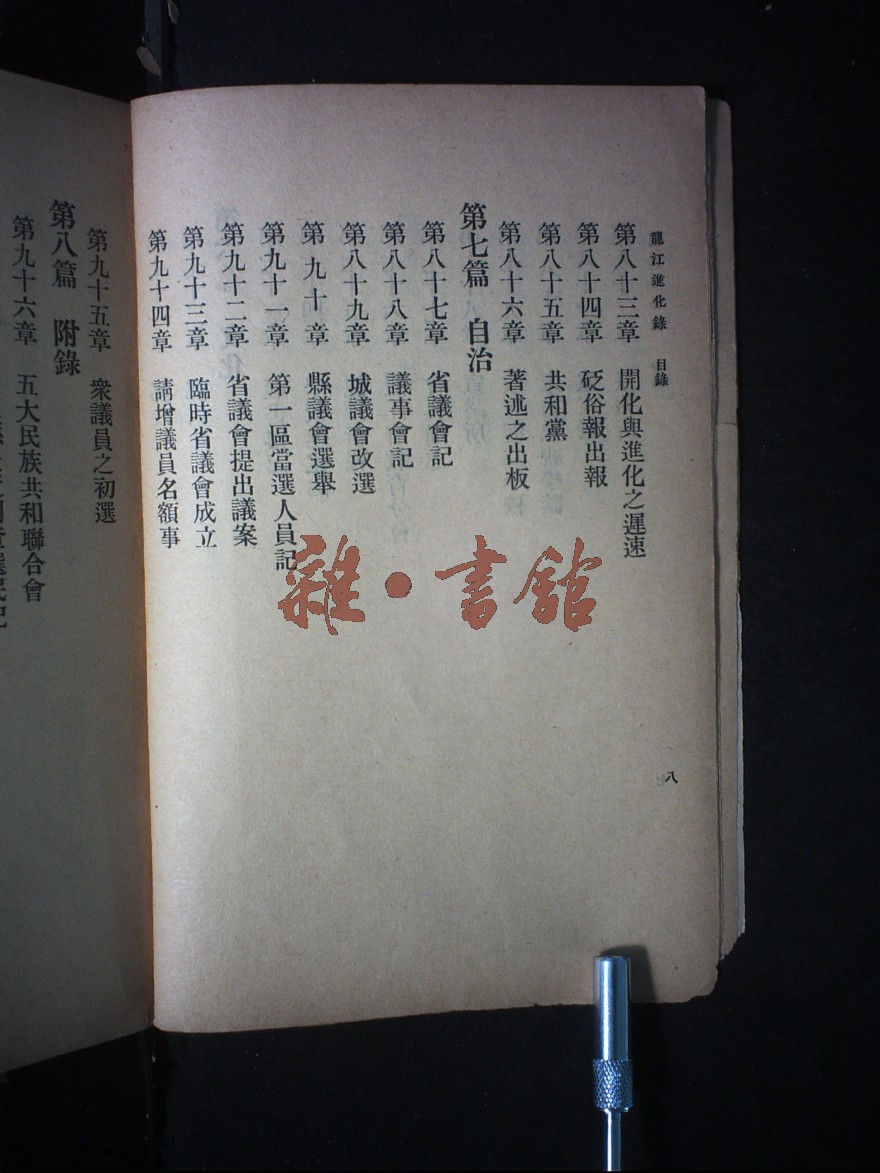 龍江進化錄 目錄
第八十三章 開化與進化之遲速
第八十四章 砭俗報出報
第八十五章 共和黨
第八十六章 著述之出板
第七篇 自治
第八十七章 省議會記
第八十八章 議事會記
第八十九章 城議會改選
第九十章 縣議會選舉
第九十一章 第一區當選人員記
第九十二章 省議會提出議案
第九十三章 臨時省議會成立
第九十四章 請增議員名額事
八
第九十五章 衆議員之初選
第八篇 附錄
第九十六章 五大民族共和聯合會
雜·書館